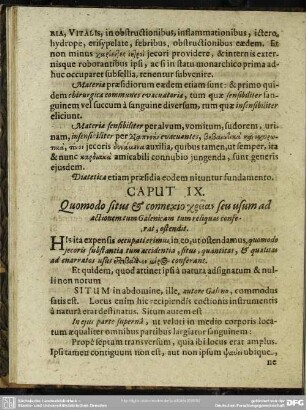 RIA, VITALIS, in obstructionibus, inflammationibus, ictero,
hydrope, erisypelate, febribus, obstructionibus eædem. Et
non minus jecori providere, & internis exter-
nisque roborantibus ipsi, ac si in statu monarchico prima ad-
huc occuparet subsellia, tenentur subvenire.
Materia præsidiorum eædem etiam sunt: & primo quidem
chirurgica communiter evacuatoria, tum quæ sensibiliter san-
guinem vel succum à sanguine diversum, tum quæ insensibiliter
eliciunt.
Materia sensibiliter per alvum, vomitum, sudorem, uri-
nam, insensibiliter per evacuantes,
jecori auxilia, quibus tamen, ut semper, ita
& nunc amicabili connubio jungenda, sunt generis
ejusdem.
Diætetica etiam præsidia eodem nituntur fundamento.
CAPUT IX.
Quomodo situs & connexio χρείας seu usum ad
actionem tum Galenicam tum reliquas confe-
rat, ostendit.
HIs ita expensis occupati erimus, in eo, ut ostendamus, quomodo
jecoris substantia tum accidentia, situs, quantitas, & qualitas
ad enarratos usus conferant.
Et quidem, quod attinet ipsi à natura adsignatum & nul-
li non notum
SITUM in abdomine, ille, autore Galeno, commodus
satis est. Locus enim hic recipiendis coctionis instrumentis
à natura erat destinatus. Situm autem est
In ejus parte supernâ, ut veloti in medio corporis loca-
tum æqualiter omnibus partibus largiatur sanguinem:
Propè septum transversum, quia ibi locus erat amplus.
Ipsi tamen contiguum non est, aut non ipsum ubique,
ne